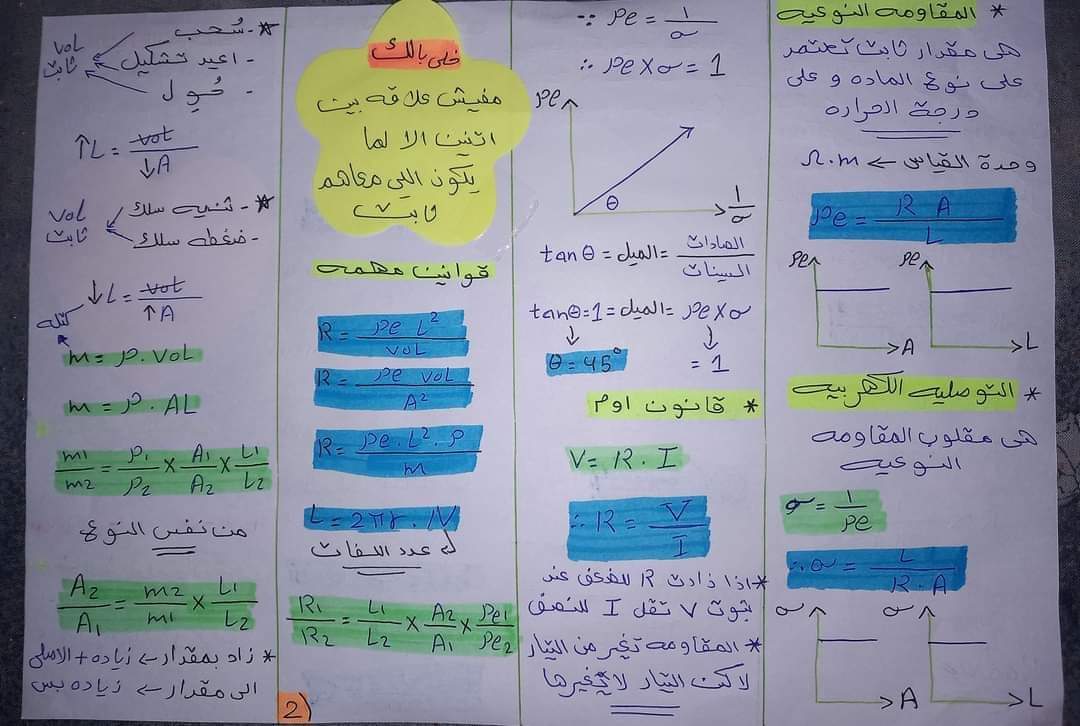 * المقاومه النوعيه
هى مقدار ثابت تعتمد
على نوع الماده و على
درجة الحراره
وحدة القياس ← Ω.m
ρe = R A / L
ρe
A
ρe
L
* التوصليه الكهربيه
هى مقلوب المقاومه
النوعيه
σ = 1 / ρe
∴ σ = L / R . A
σ
A
σ
L
∵ ρe = 1 / σ
∴ ρe × σ = 1
ρe
θ
1 / σ
tan θ = الميل = الصادات / السينات
tanθ = 1 = الميل = ρe × σ
θ = 45°
= 1
* قانون اوم
V = R . I
∴ R = V / I
* اذا ذادت R للضعف عند
ثبوت V تقل I للنصف
* المقاومه تغير من التيار
لاكن التيار لا يغيرها
خلى بالك
مفيش علاقه بين
اتنين الا لما
يكون اللى معاهم
ثابت
قوانين مهمه
R = ρe L² / VOL
R = ρe VOL / A²
R = ρe . L² . ρ / m
L = 2πr . N
عدد اللفات
R1 / R2 = L1 / L2 × A2 / A1 × ρe1 / ρe2
2)
* - سُحب
- اعيد تشكيل
- حُول
VOL
ثابت
↑L = VOL / ↓A
* - ثنيه سلك
- ضغطه سلك
VOL
ثابت
↓L = VOL / ↑A
كتله
m = ρ . VOL
m = ρ . AL
m1 / m2 = ρ1 / ρ2 × A1 / A2 × L1 / L2
من نفس النوع
A2 / A1 = m2 / m1 × L1 / L2
* زاد بمقدار ← زياده + الاصلى
الى مقدار ← زياده بس